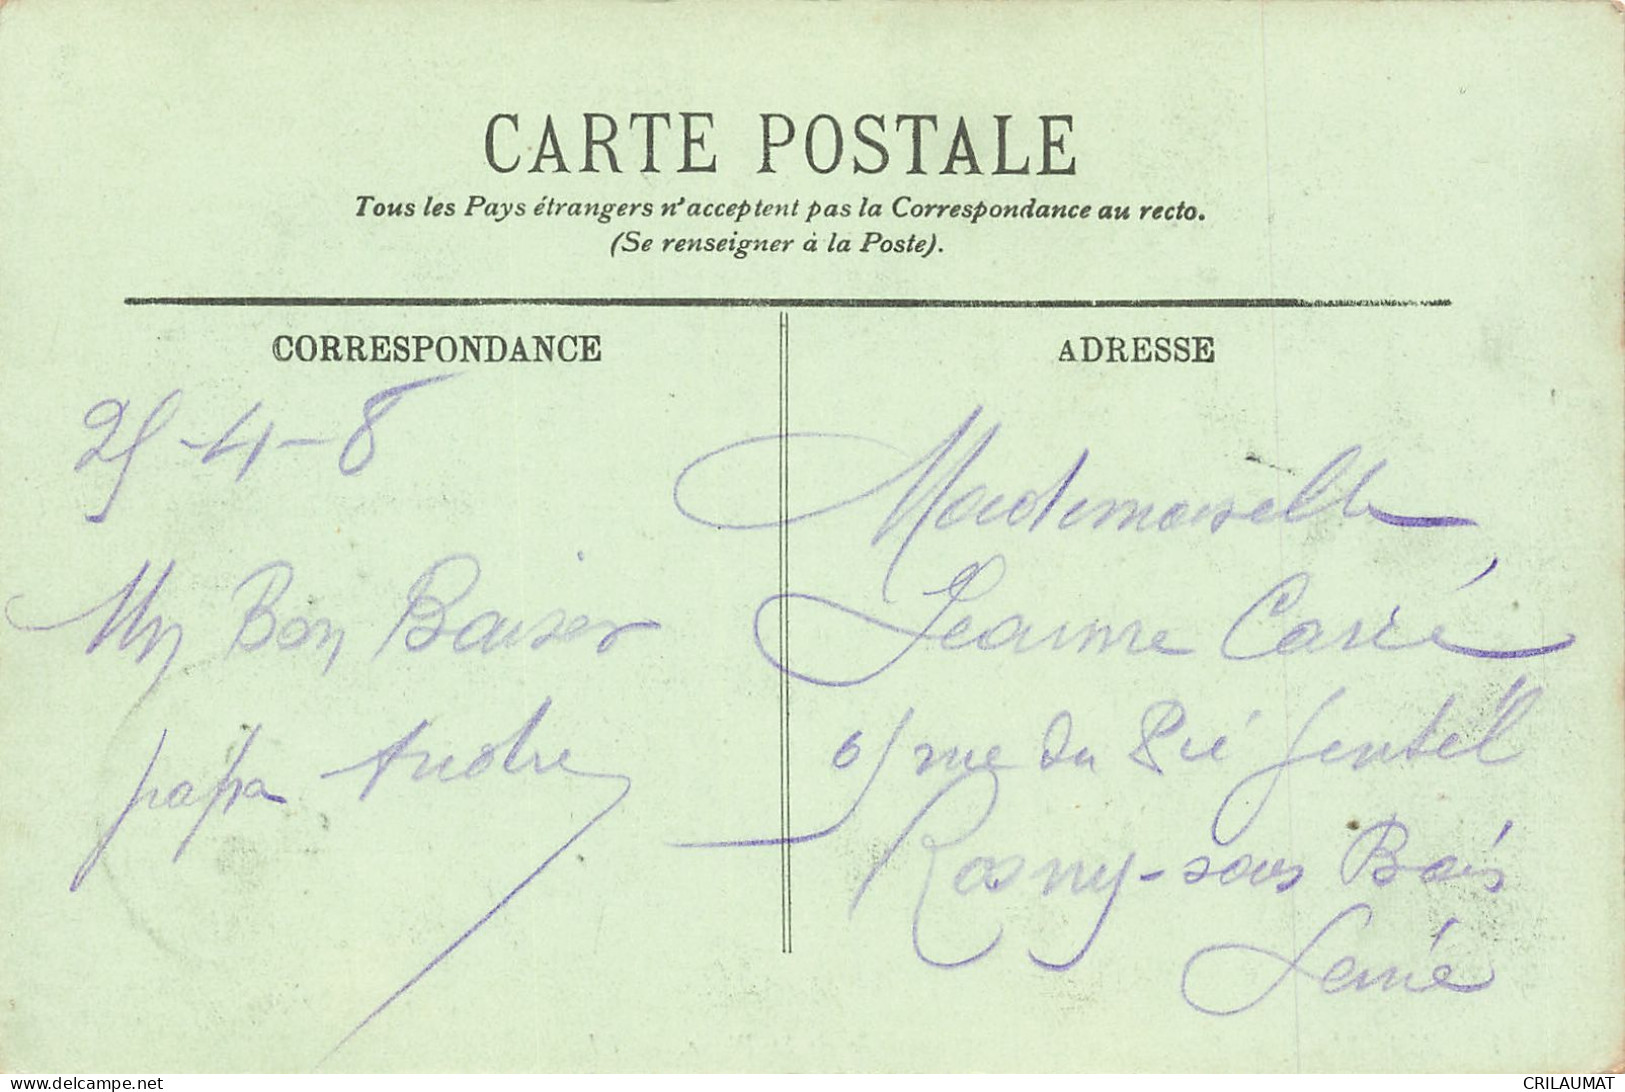 CARTE POSTALE
Tous les Pays étrangers n'acceptent pas la Correspondance au recto.
(Se renseigner à la Poste).
CORRESPONDANCE
25-4-8
Un Bon Baiser
papa André
ADRESSE
Mademoiselle
Jeanne Carré
6 rue du Pré Gentil
Rosny-sous Bois
Seine
www.delcampe.net
CRILAUMAT